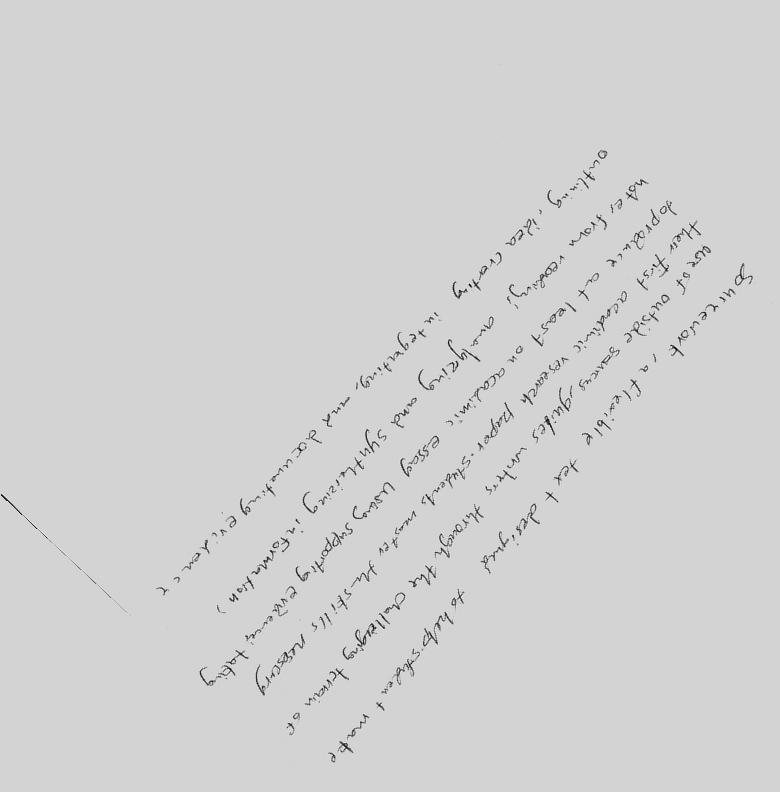 Sourcework, a flexible text designed to help studen t make
use of outside sources, guites writers through the challenging terrain of
their first academic research paper. students master the skills nessary
to produce at least on academic essay using supporting evidence; taking
note, from readings; analyzing and synthesizing information,
outlining, idea crating integrating, and documenting evidence